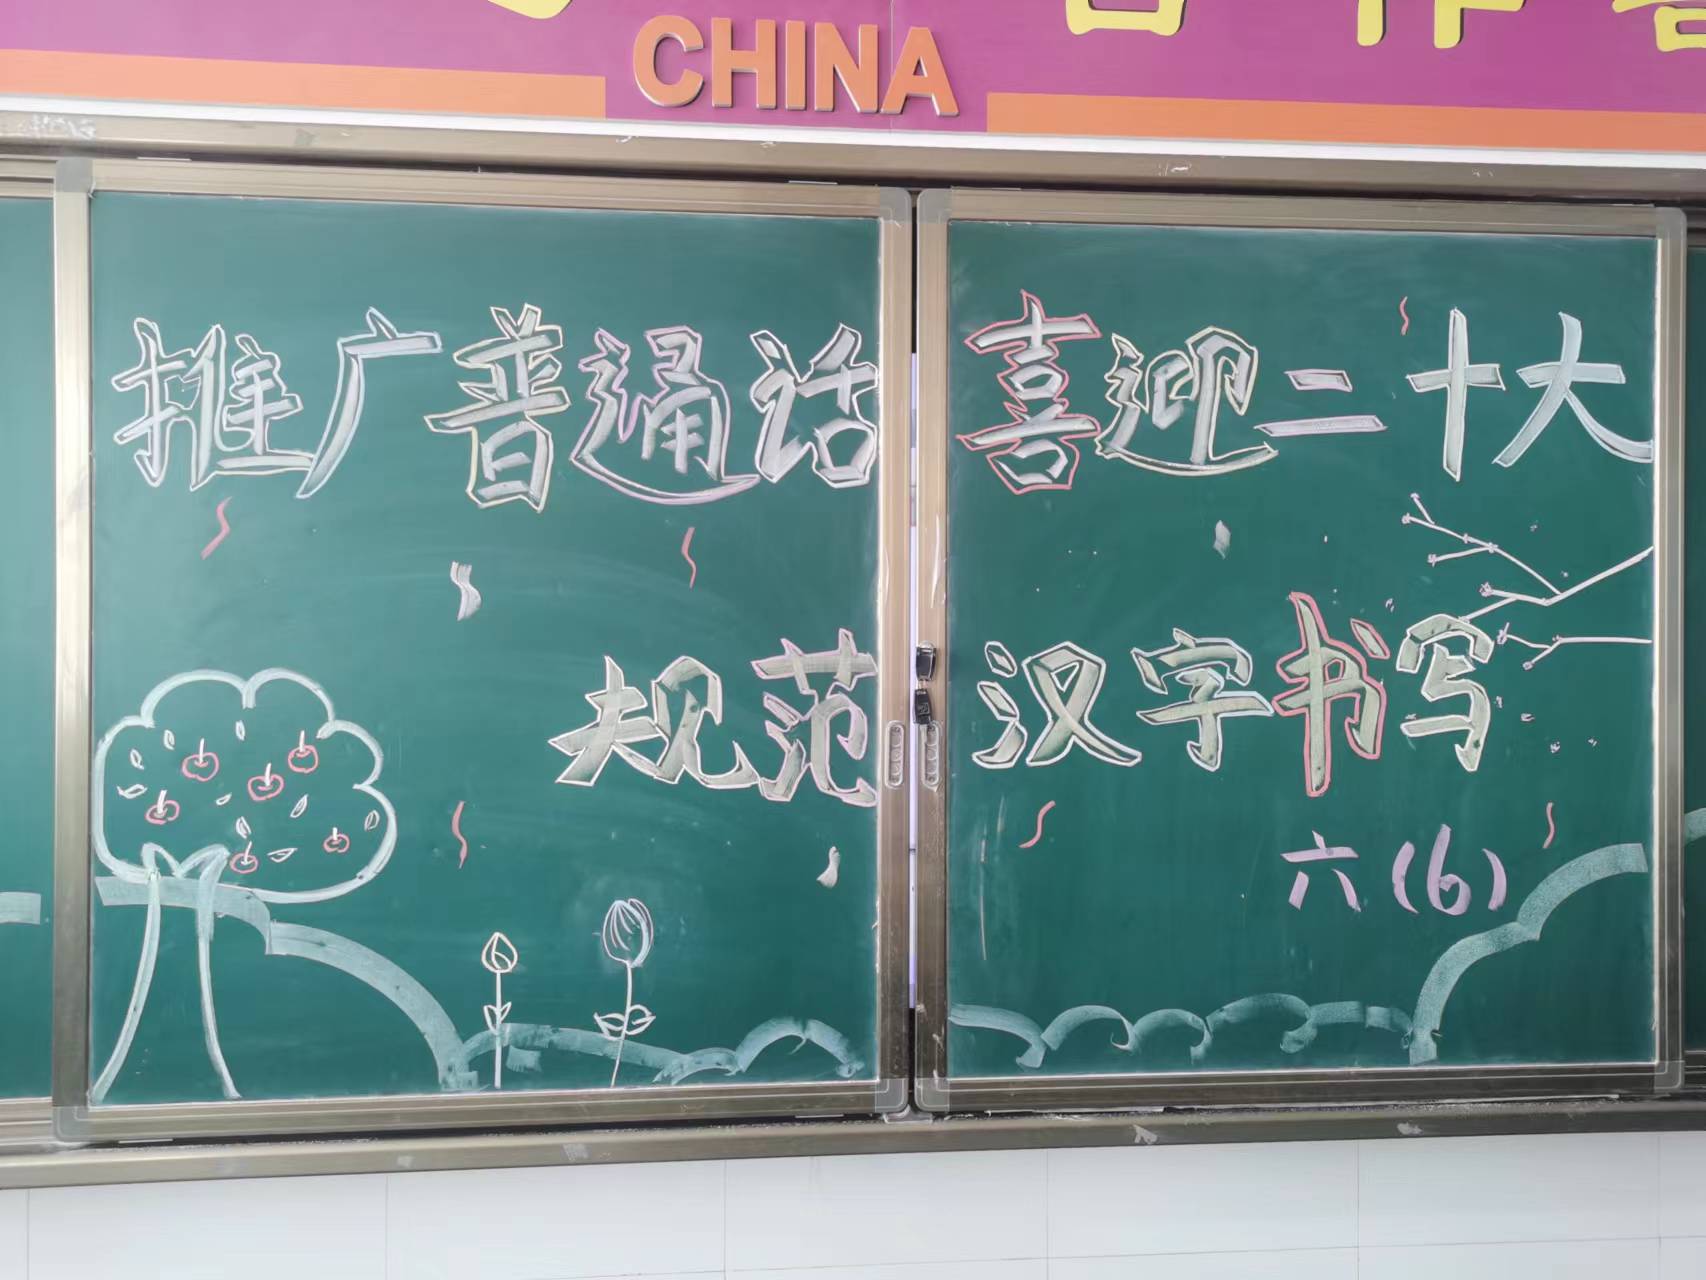 CHINA
推广普通话 喜迎二十大
规范汉字书写
六(6)